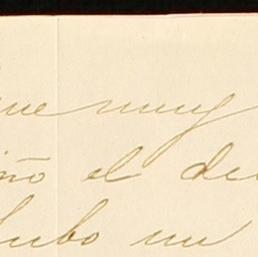 ue muy
iño el de
hubo un